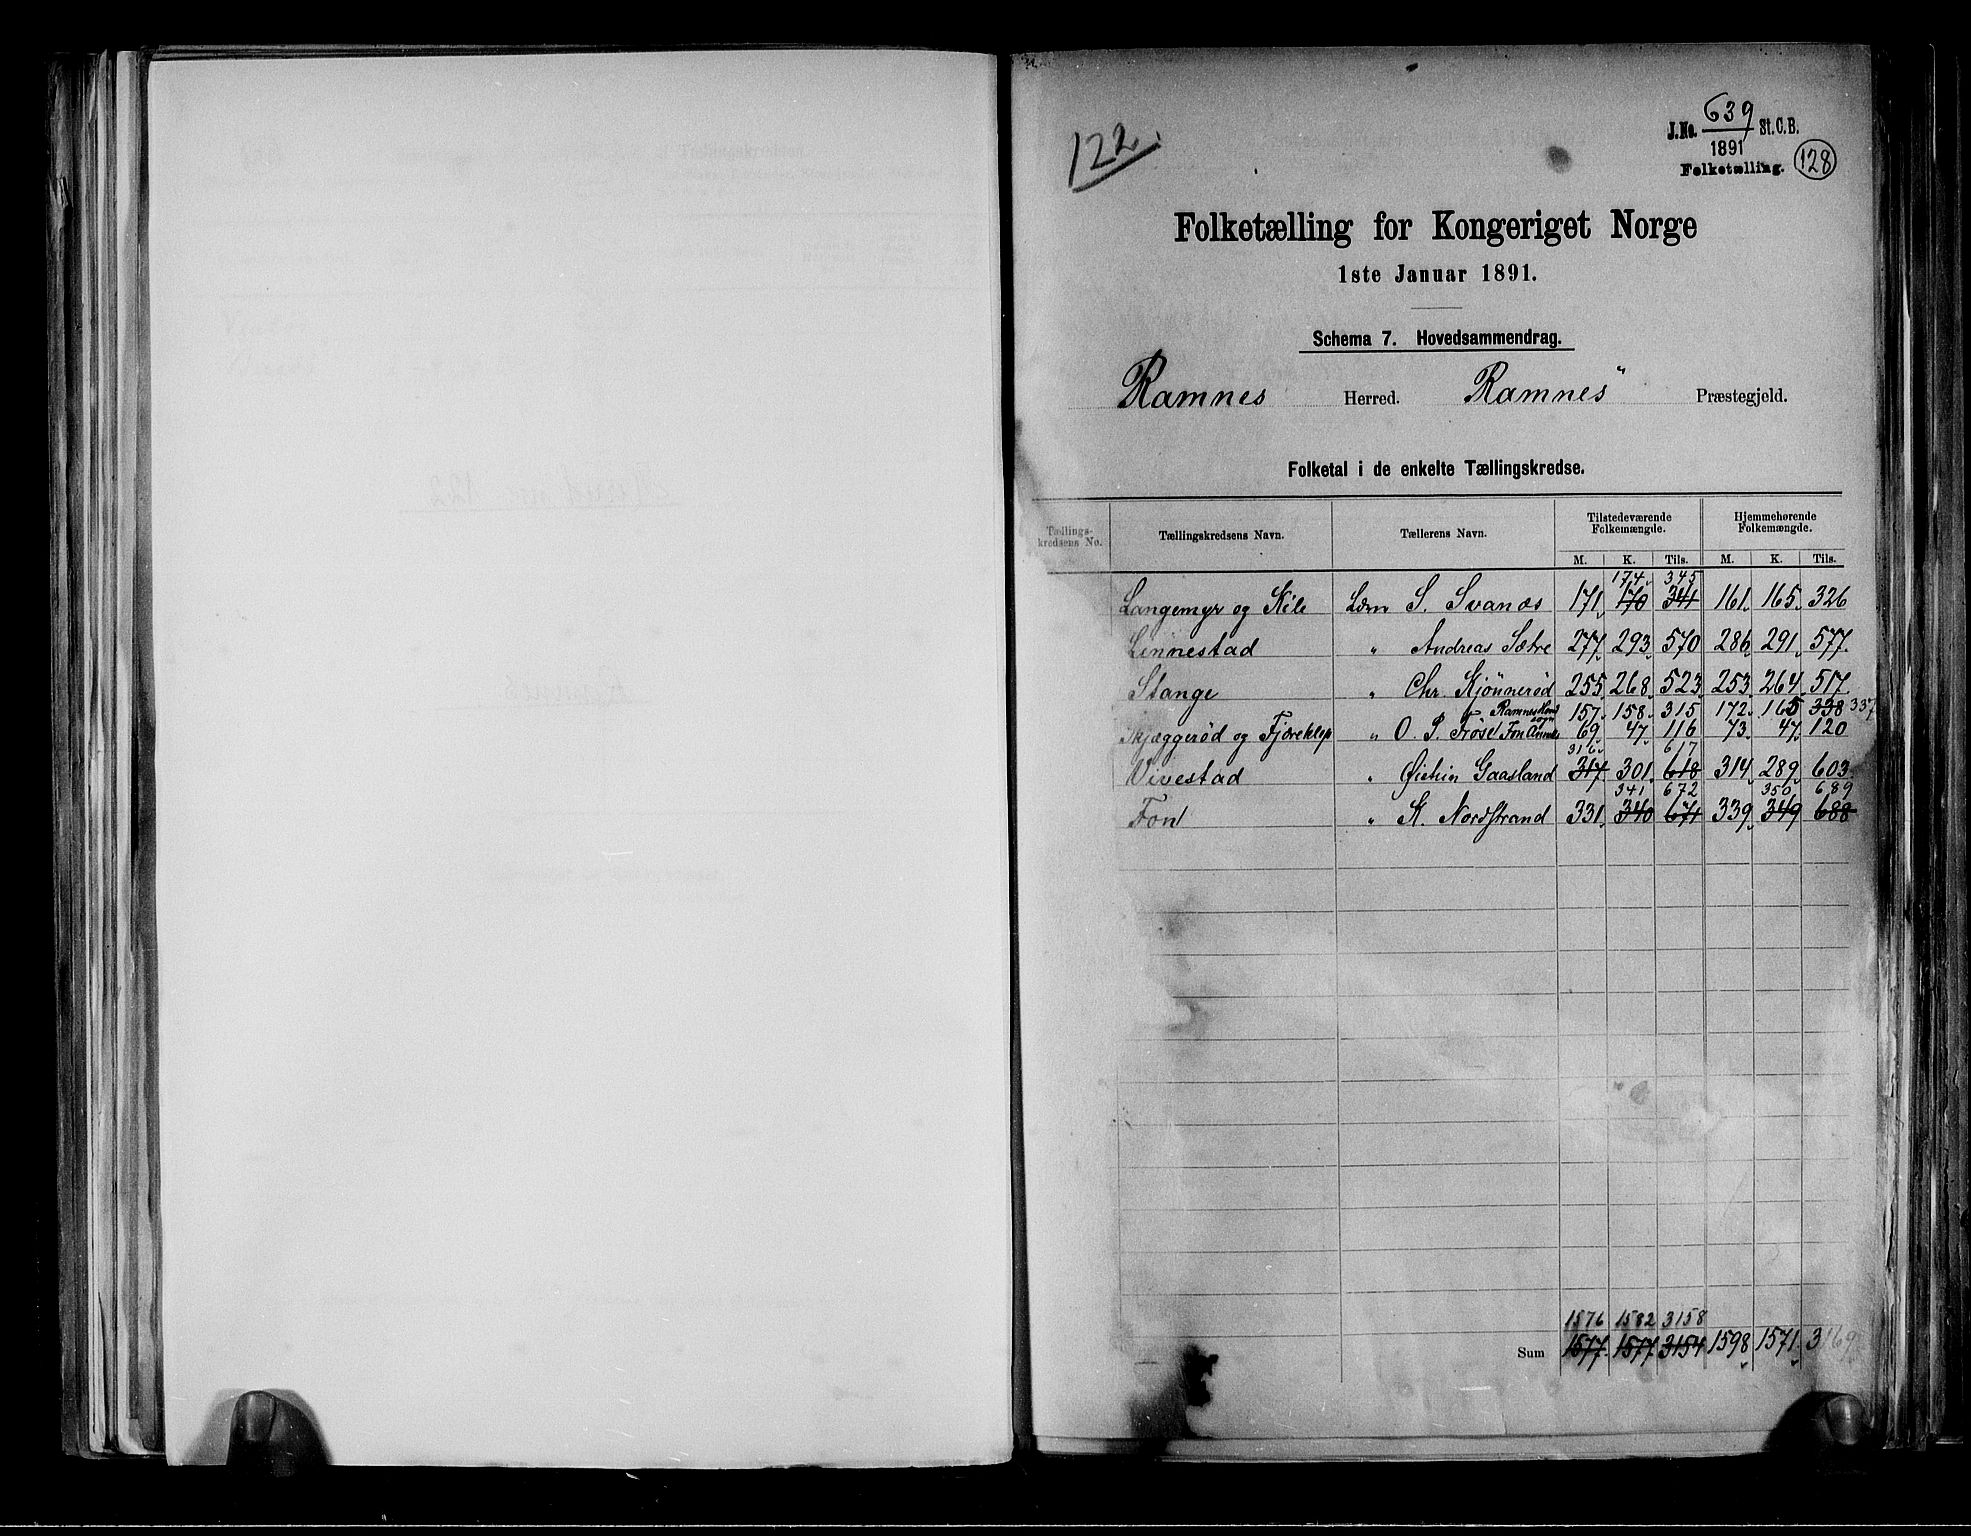 122.
J.No. 639 St.C.B.
1891
Folketælling. 128
Folketælling for Kongeriget Norge
1ste Januar 1891.
Schema 7. Hovedsammendrag.
Ramnes Herred. Ramnes Præstegjeld.
Folketal i de enkelte Tællingskredse.
Tællings- Tilstedeværende Hjemmehørende
kredsens No. Tællingskredsens Navn. Tællerens Navn. Folkemængde. Folkemængde.
M. K. Tils. M. K. Tils.
174 345
Langemyr og Kile Lærer S. Svanæs 171 170 341 161 165 326
Linnestad " Andreas Sætre 277 293 570 286 291 577
Stange " Chr. Kjønnerød 255 268 523 253 264 517
Ramnes 157 158 315 172 165 338 337
Skjæggerød og Fjæreklep " O. P. Frøsel Fon 69 47 116 73 47 120
316 617
Vivestad " Gaasland 317 301 618 314 289 603
341 672 350 689
Fon " K. Nordstrand 331 340 671 339 349 688
1576 1582 3158
Sum 1577 1577 3154 1598 1571 3169